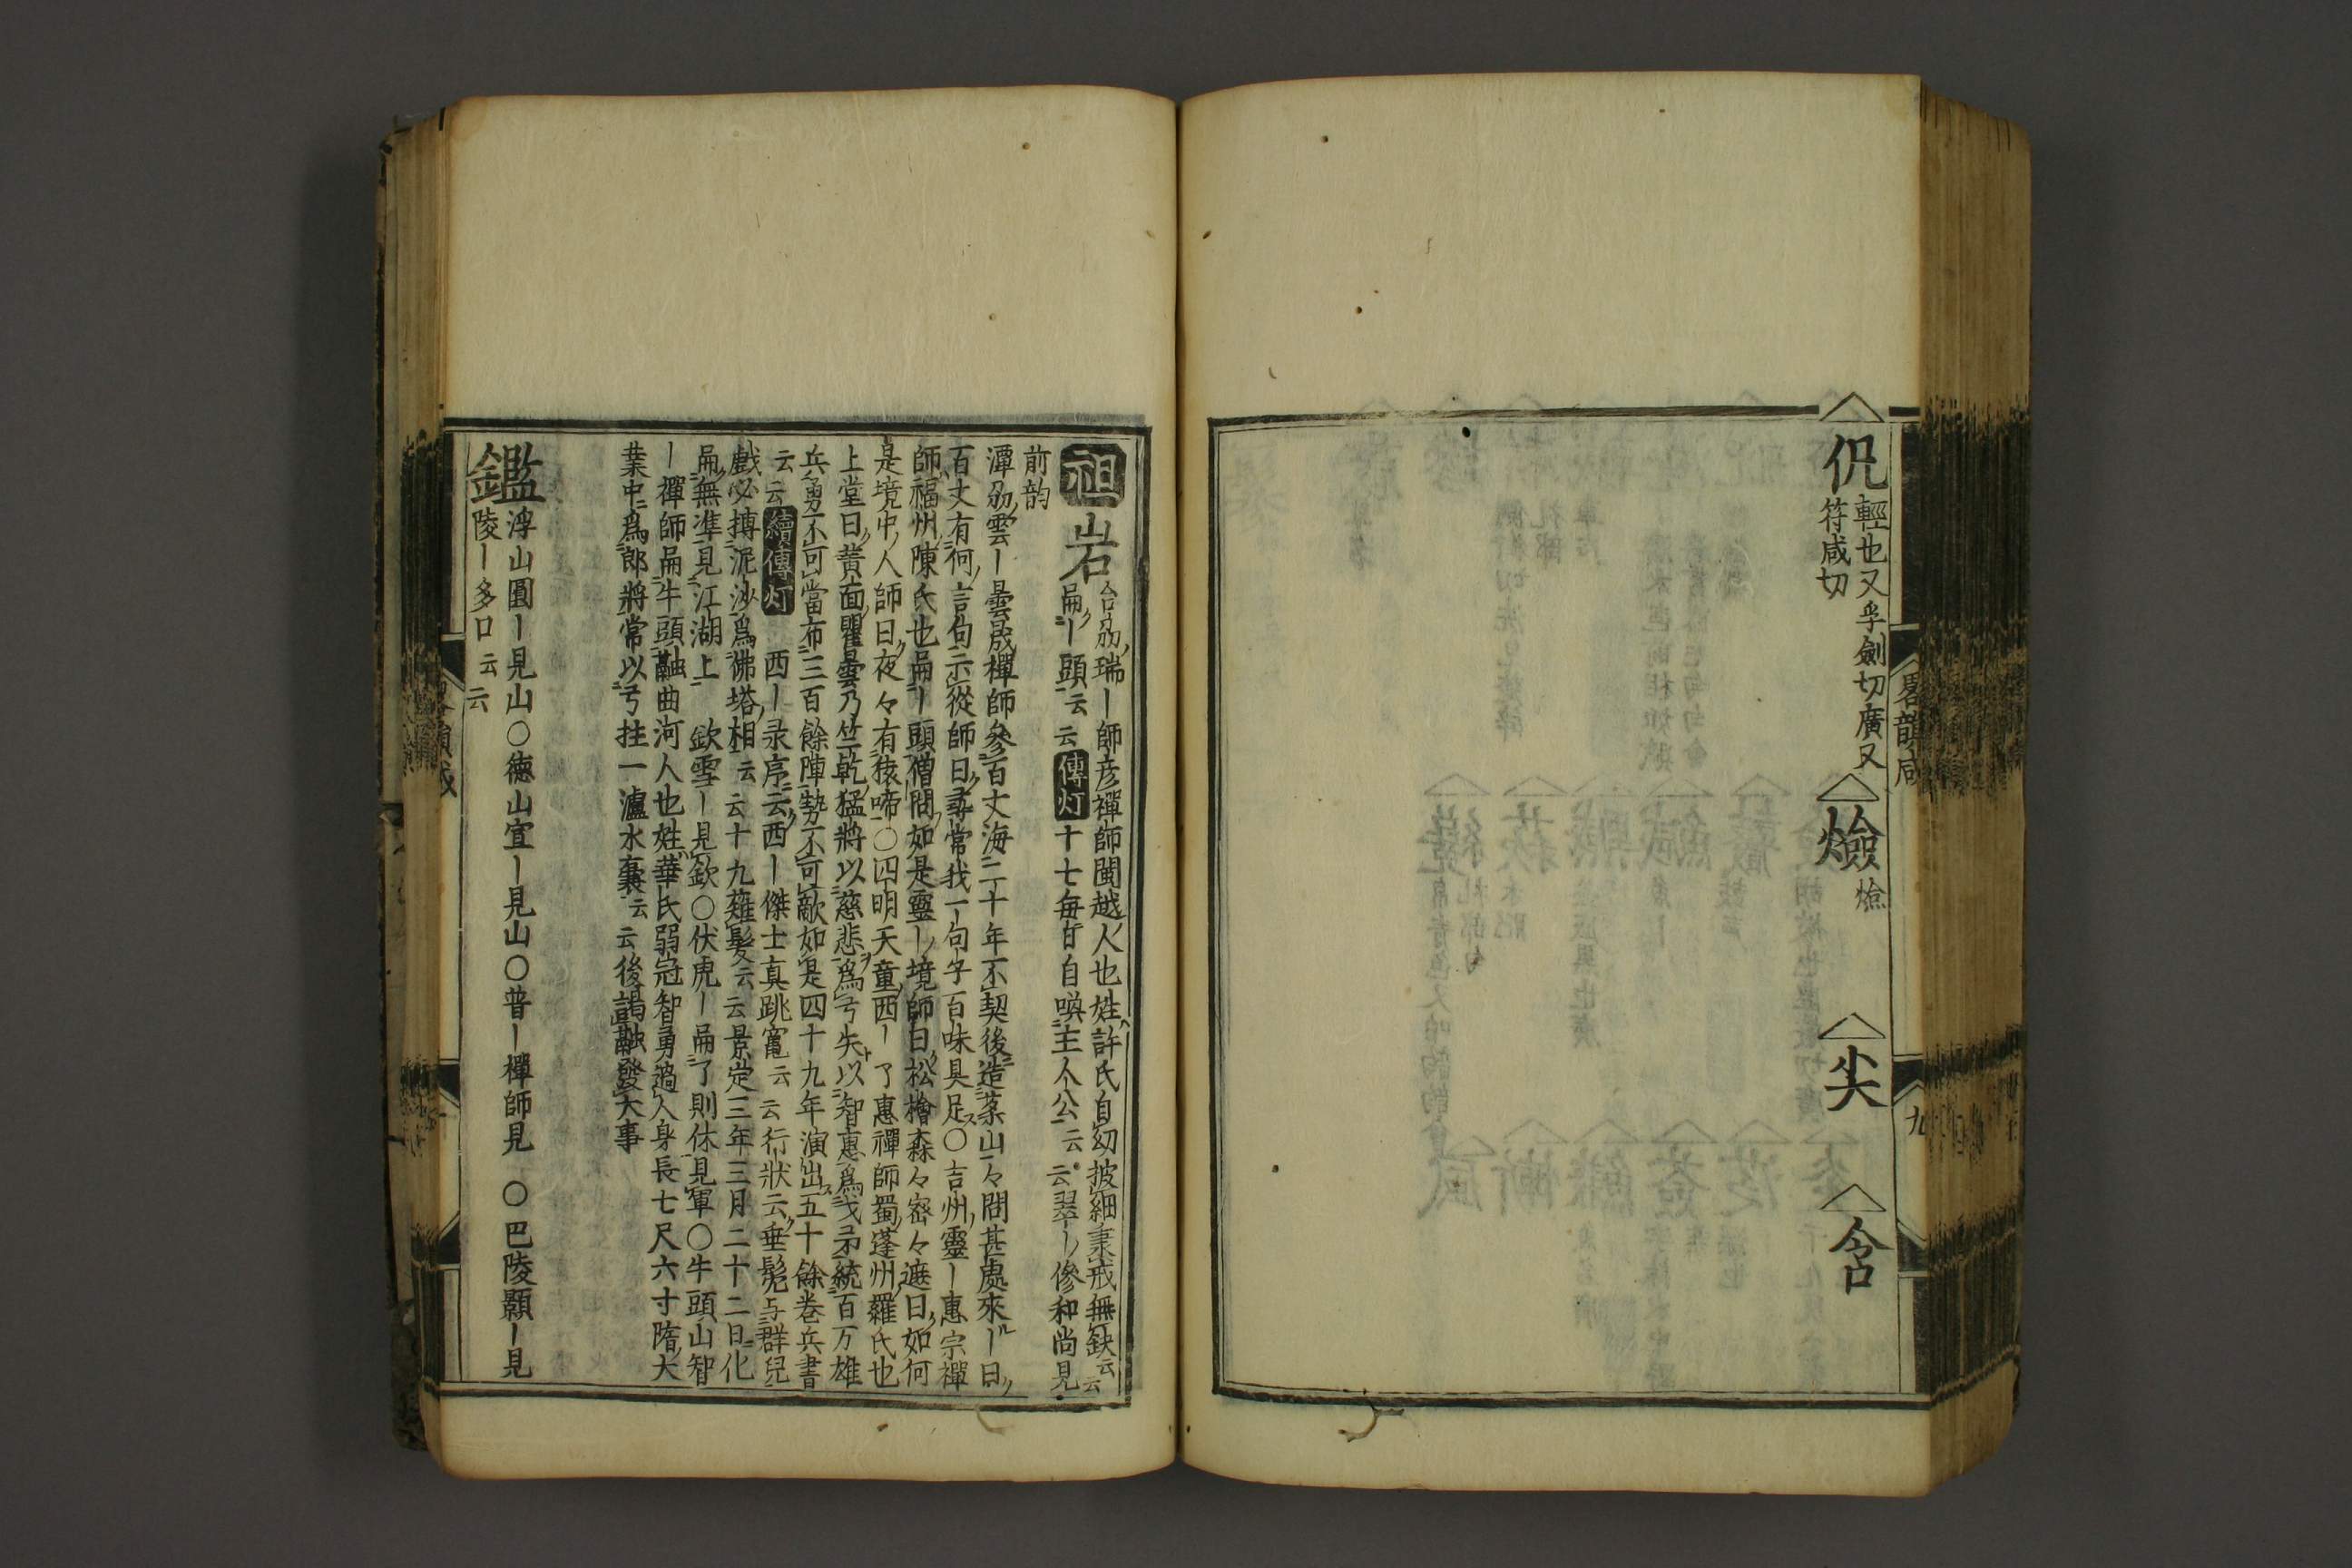 㑀輕也又孚劍切廣又
符咸切
爓燴
尖
含
畧韻咸
九
祖岩台刕瑞ー師彦禪師閩越人也姓許氏自幼披緇秉戒無缺云云
扁ー頭云云傳灯十七每日自喚主人公云云翠ー參和尚見
前韵
潭刕雲ー曇晟禪師參百丈海二十年不契後造藥山々問甚處來ー曰
百丈有何言句示從師曰尋常我一句子百味具足〇吉州靈ー惠宗禪
師福州陳氏也扁ー頭僧問如是靈ー境師曰松檜森々密々遮曰如何
是境中人師曰夜々有猿啼〇四明天童西ー了惠禪師蜀蓬州羅氏也
上堂曰黃面瞿曇乃竺乾猛將以慈悲爲弓矢以智惠爲戈矛統百万雄
兵勇不可當布三百餘陣勢不可敵如是四十九年演出五十餘卷兵書
云云續傳灯西ー录序云西ー傑士真跳竃云云行狀云垂髫与群兒
戲必摶泥沙爲佛塔相云云十九薙髮云云景定三年三月二十二日化
扁無準見江湖上欽雪ー見欽〇伏虎ー扁了則休見軍〇牛頭山智
ー禪師扁牛頭融曲河人也姓華氏弱冠智勇過人身長七尺六寸隋大
葉中爲郎將常以弓拄一瀘水囊云云後謁融發大事
鑑浮山圓ー見山〇德山宣ー見山〇普ー禪師見〇巴陵顥ー見
陵ー多口云云